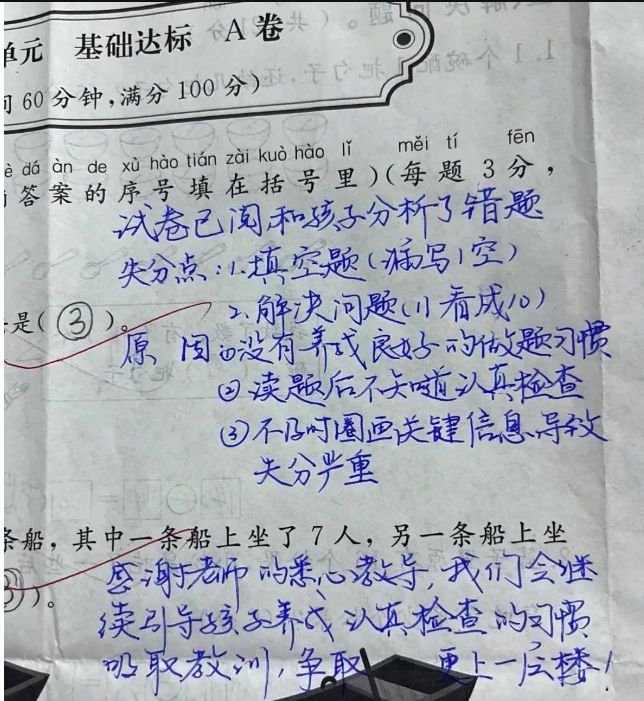 单元 基础达标 A卷
间60分钟,满分100分)
dá àn de xù hào tián zài kuò hào lǐ měi tí fēn
答案的序号填在括号里)(每题3分,
试卷已阅,和孩子分析了错题
失分点:1.填空题(漏写1空)
2.解决问题(11看成10)
是(③)。
原因①没有养成良好的做题习惯
②读题后不知道认真检查
③不及时圈画关键信息导致
失分严重
条船,其中一条船上坐了7人,另一条船上坐
③)。
感谢老师的悉心教导,我们会继
续引导孩子养成认真检查的习惯
吸取教训,争取更上一层楼!